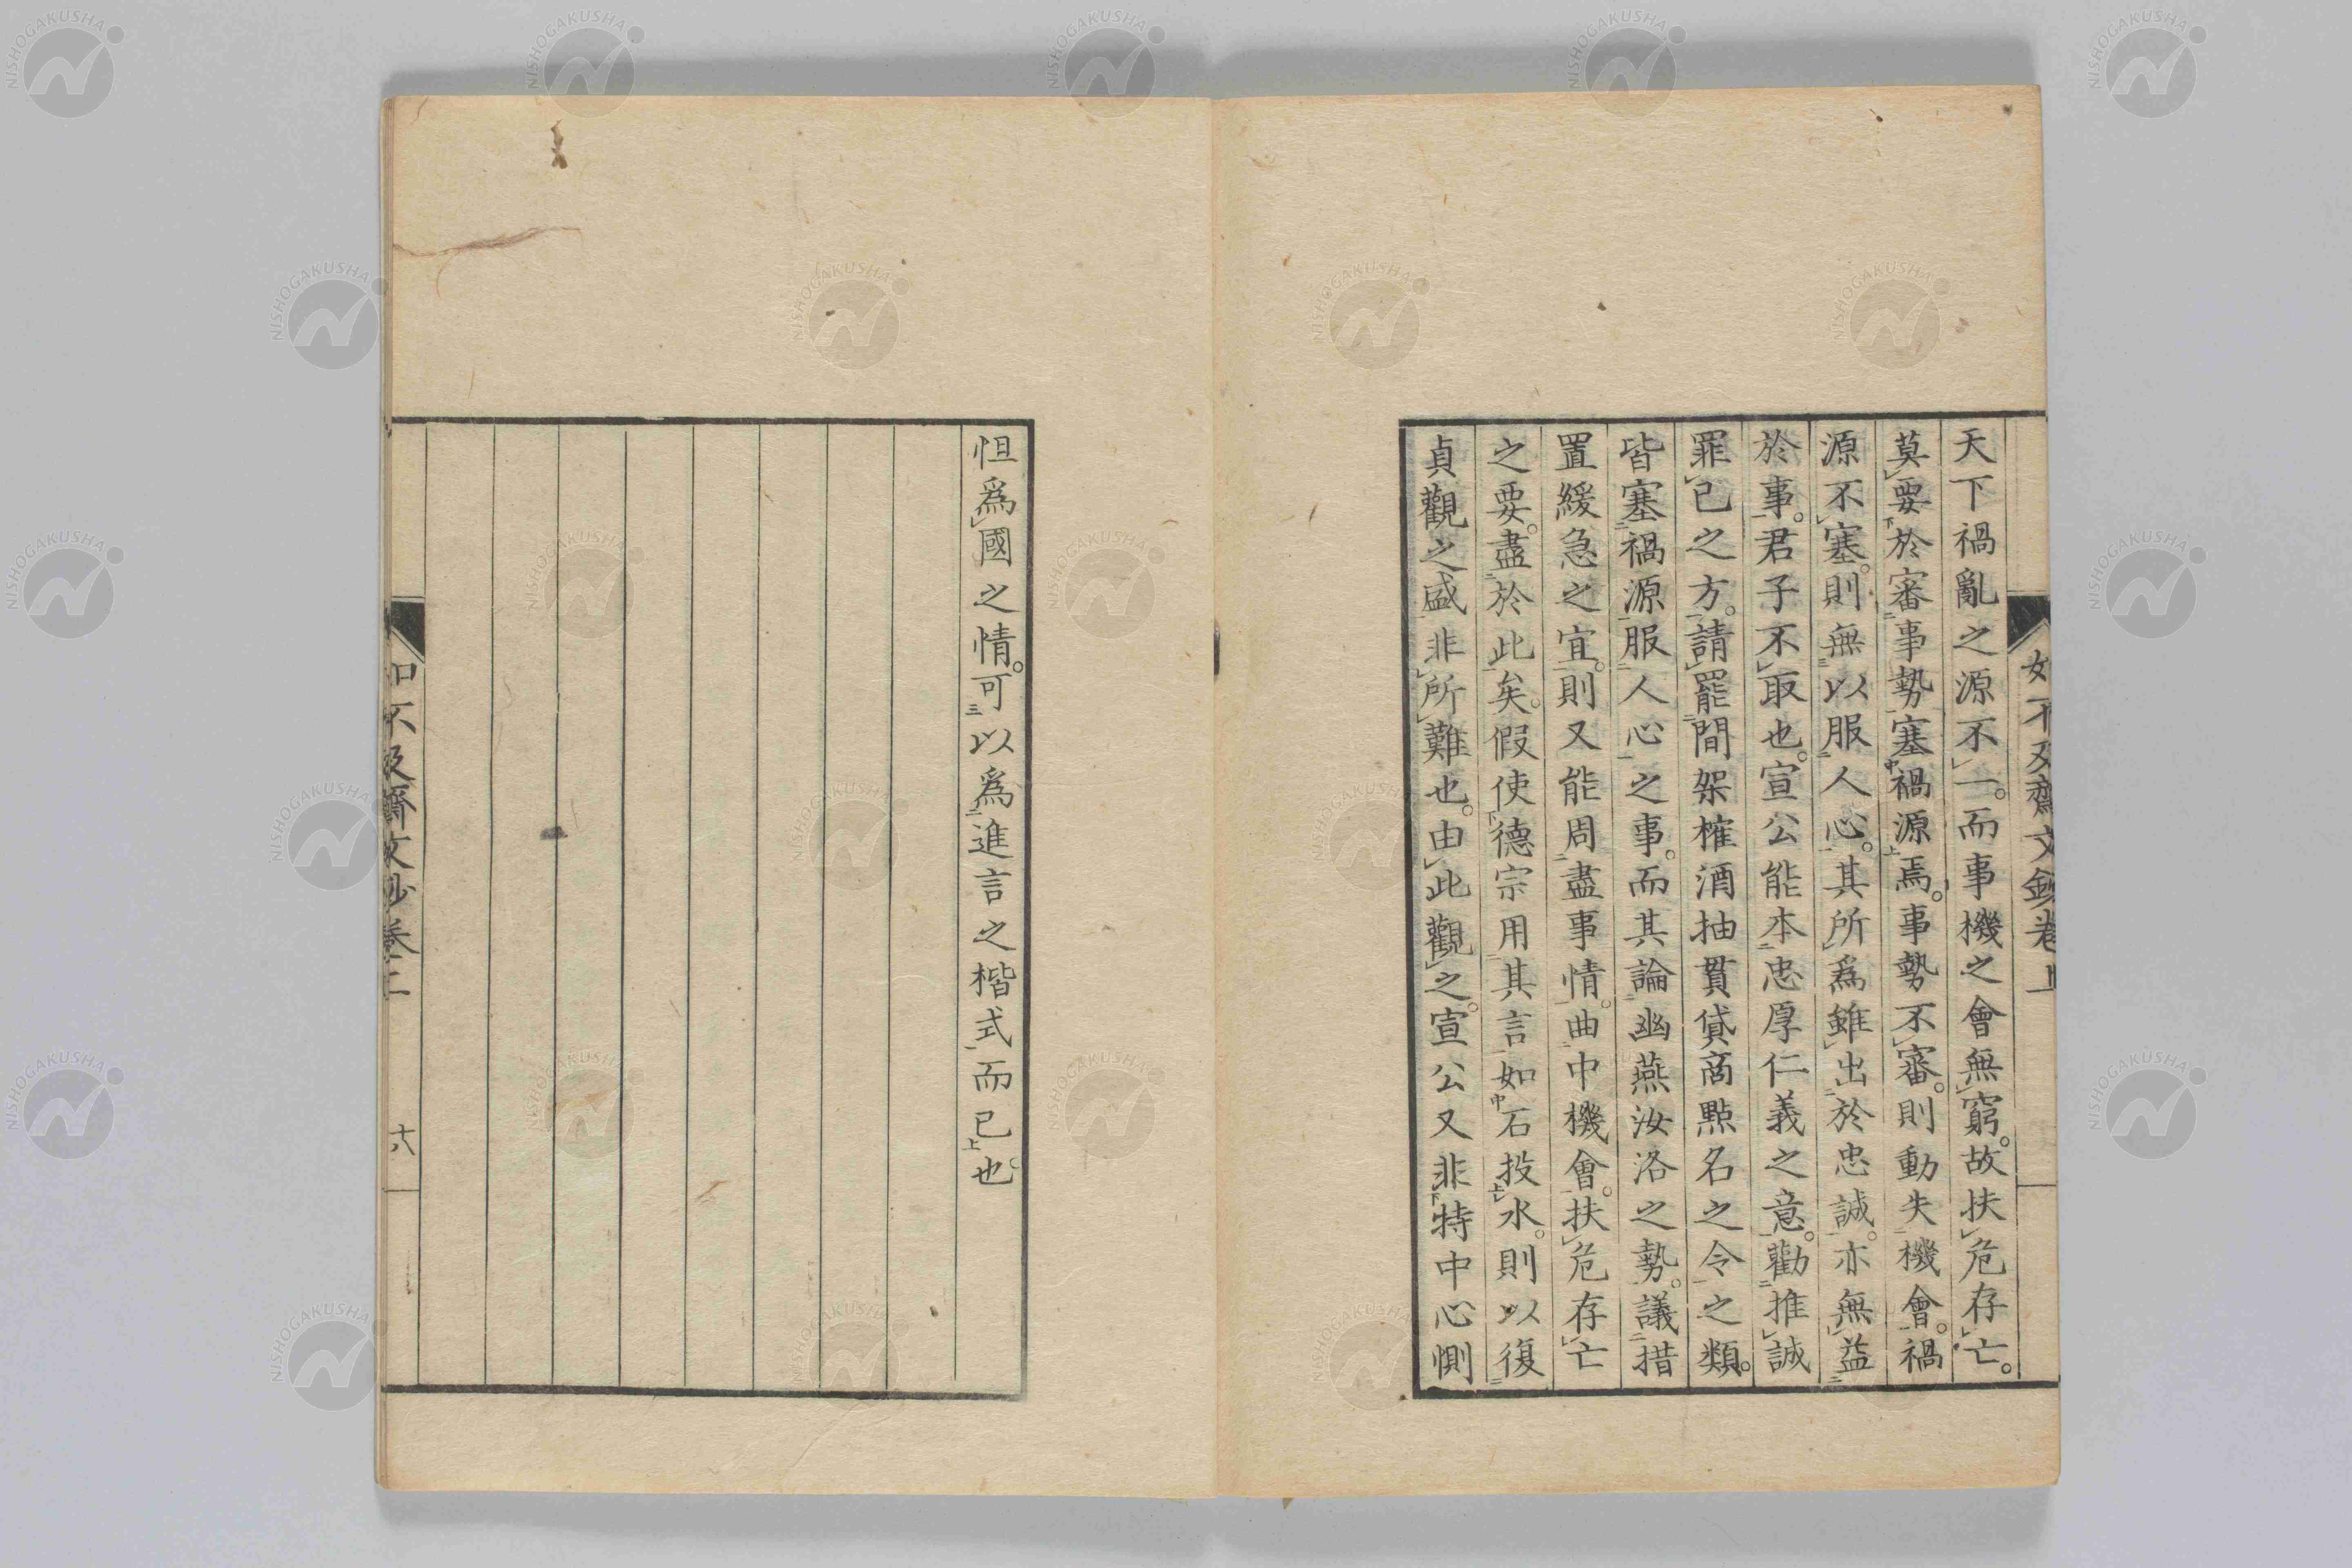 如不及齋文鈔卷上
天下禍亂之源不一而事機之會無窮故扶危存亡
莫要於審事勢塞禍源焉事勢不審則動失機會禍
源不塞則無以服人心其所爲雖出於忠誠亦無益
於事君子不取也宣公能本忠厚仁義之意勸推誠
罪己之方請罷間架榷酒抽貫貸商點名之令之類
皆塞禍源服人心之事而其論幽燕汝洛之勢議措
置緩急之宜則又能周盡事情曲中機會扶危存亡
之要盡於此矣假使德宗用其言如石投水則以復
貞觀之盛非所難也由此觀之宣公又非特中心惻
怛爲國之情可以爲進言之楷式而已也
如不及齋文鈔卷上
十八
NISHOGAKUSHA